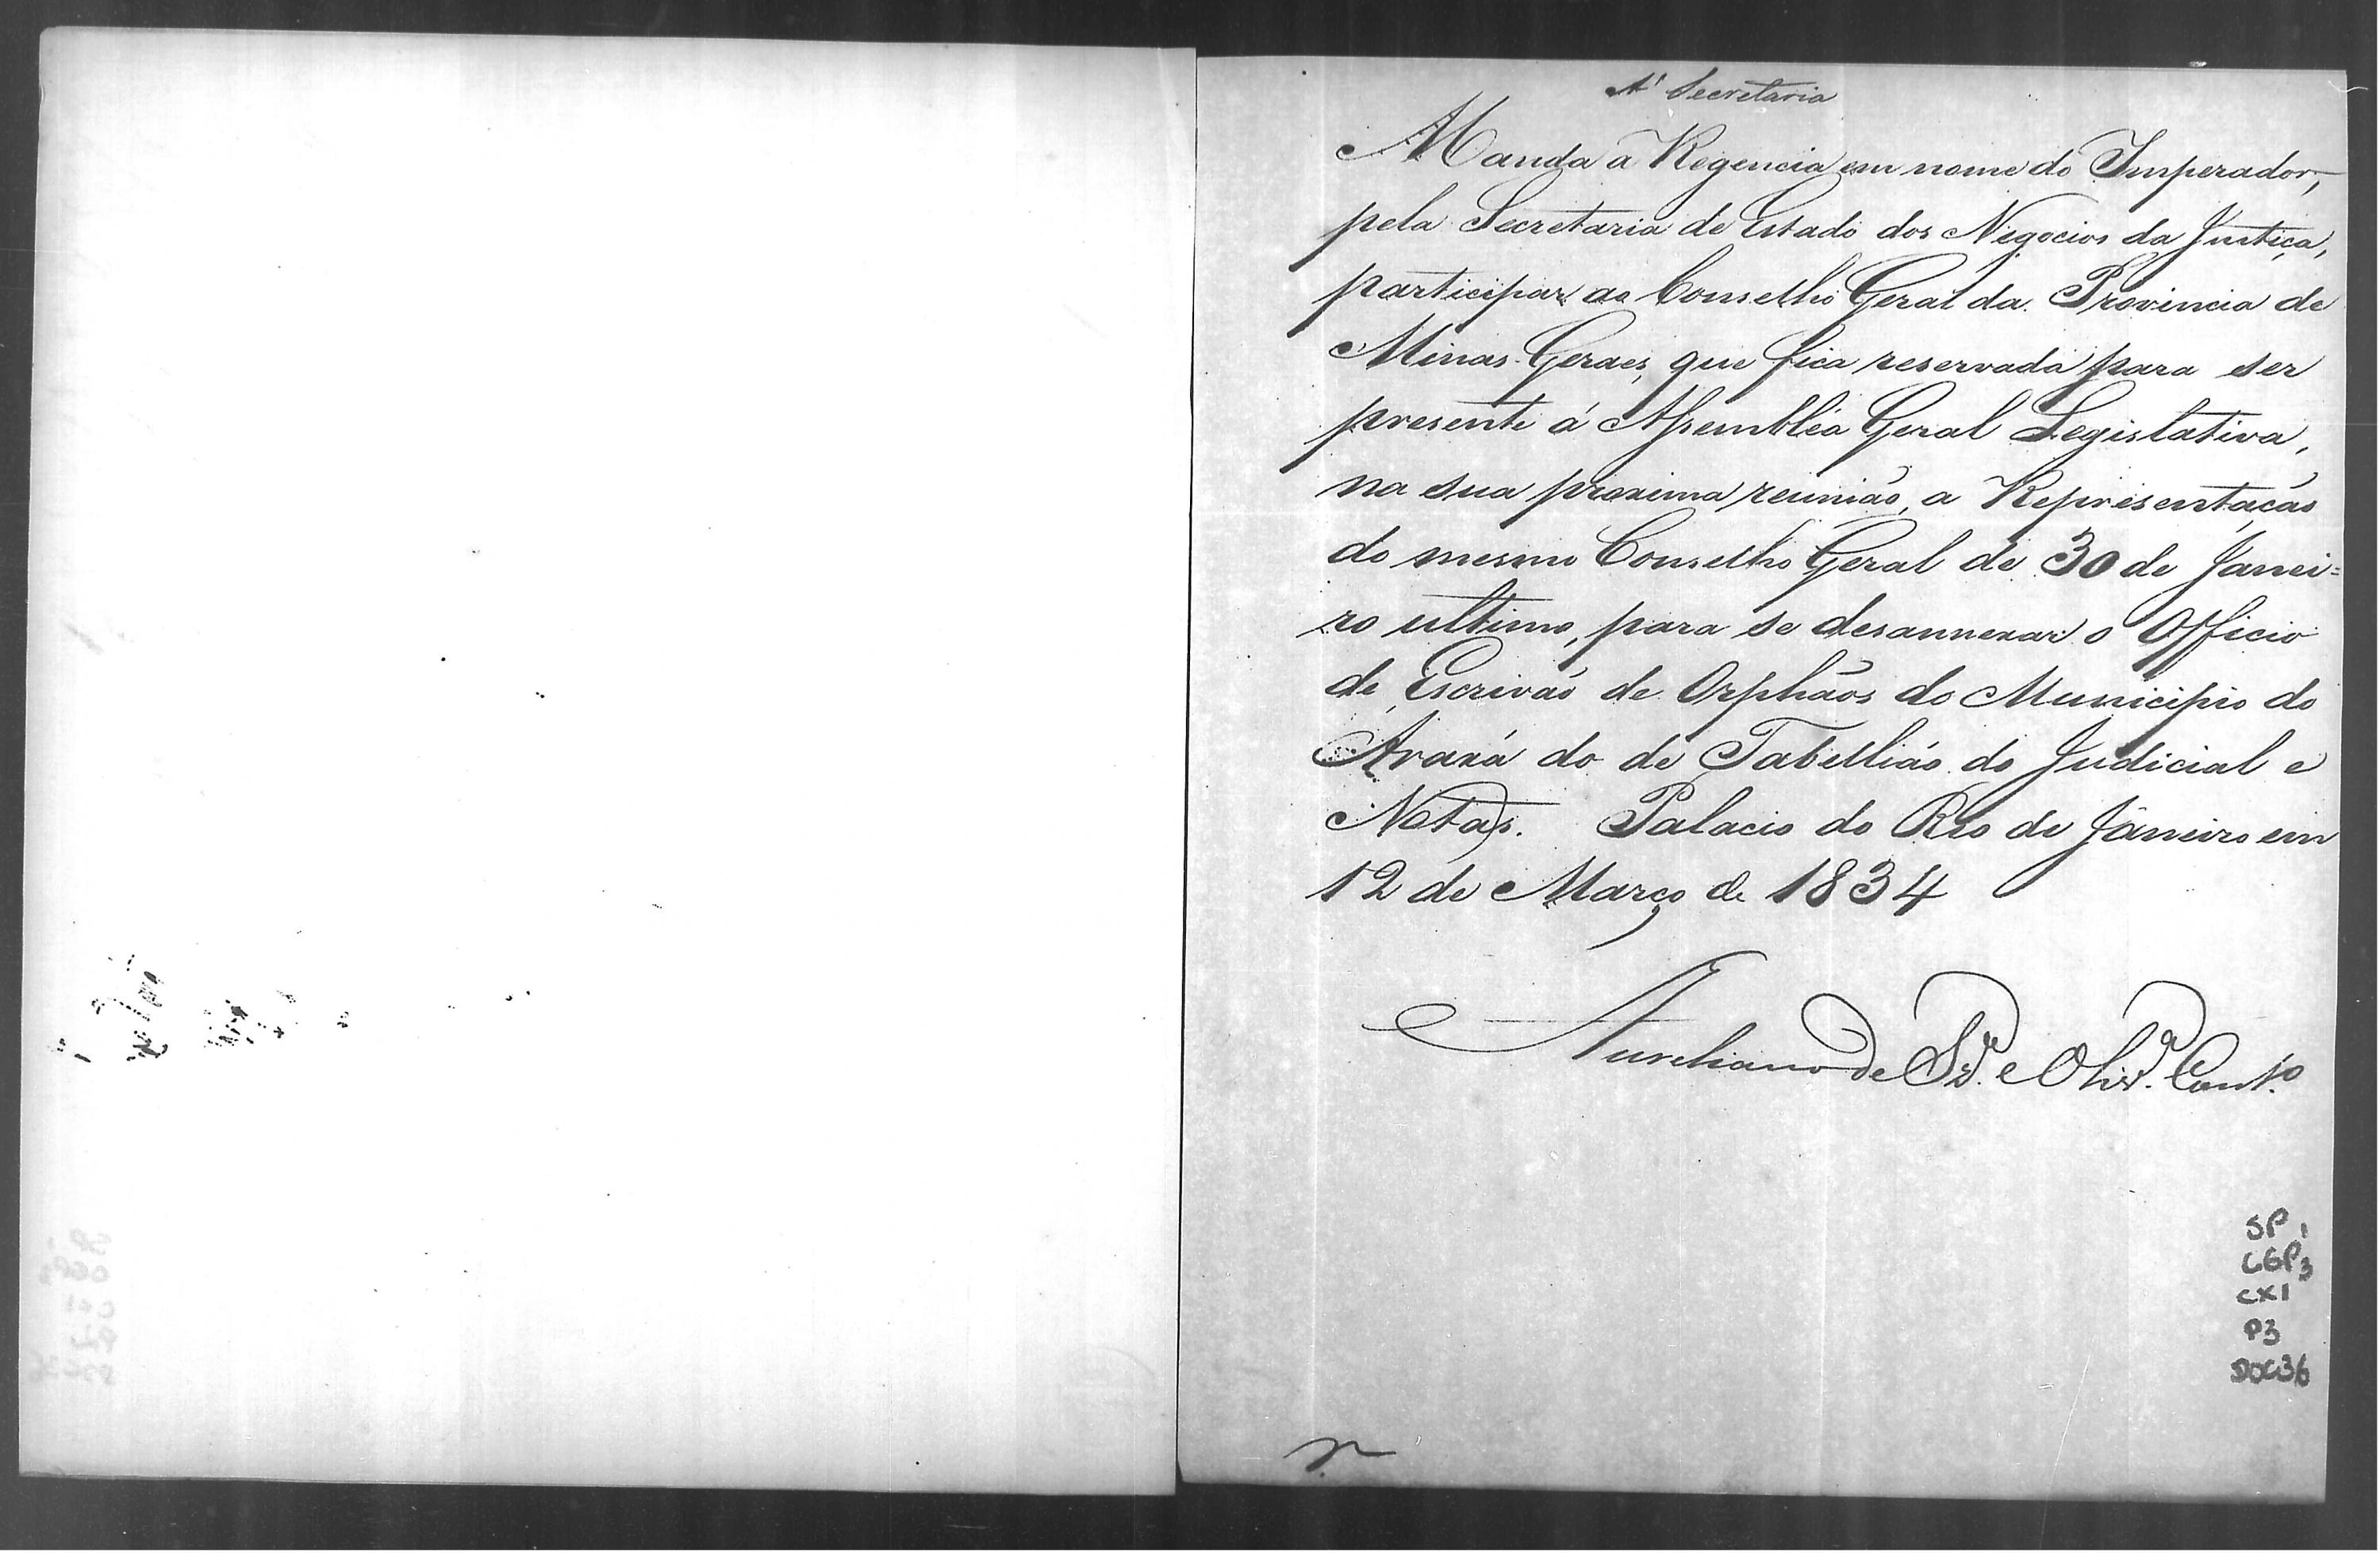 A' Secretaria
Manda a Regencia em nome do Imperador,
pela Secretaria de Estado dos Negocios da Justiça,
participar ao Conselho Geral da Provincia de
Minas Geraes, que fica reservada para ser
presente á Assembléa Geral Legislativa,
na sua proxima reunião, a Representação
do mesmo Conselho Geral de 30 de Janei=
ro ultimo, para se desannexar o Officio
de Escrivão de Orphãos do Municipio do
Araxá do de Tabellião do Judicial e
Notas. Palacio do Rio de Janeiro em
12 de Março de 1834
Aureliano de Sz.ª e Oliv.ª Cout.º
SP 1
CGP3
CX1
P3
DOC36